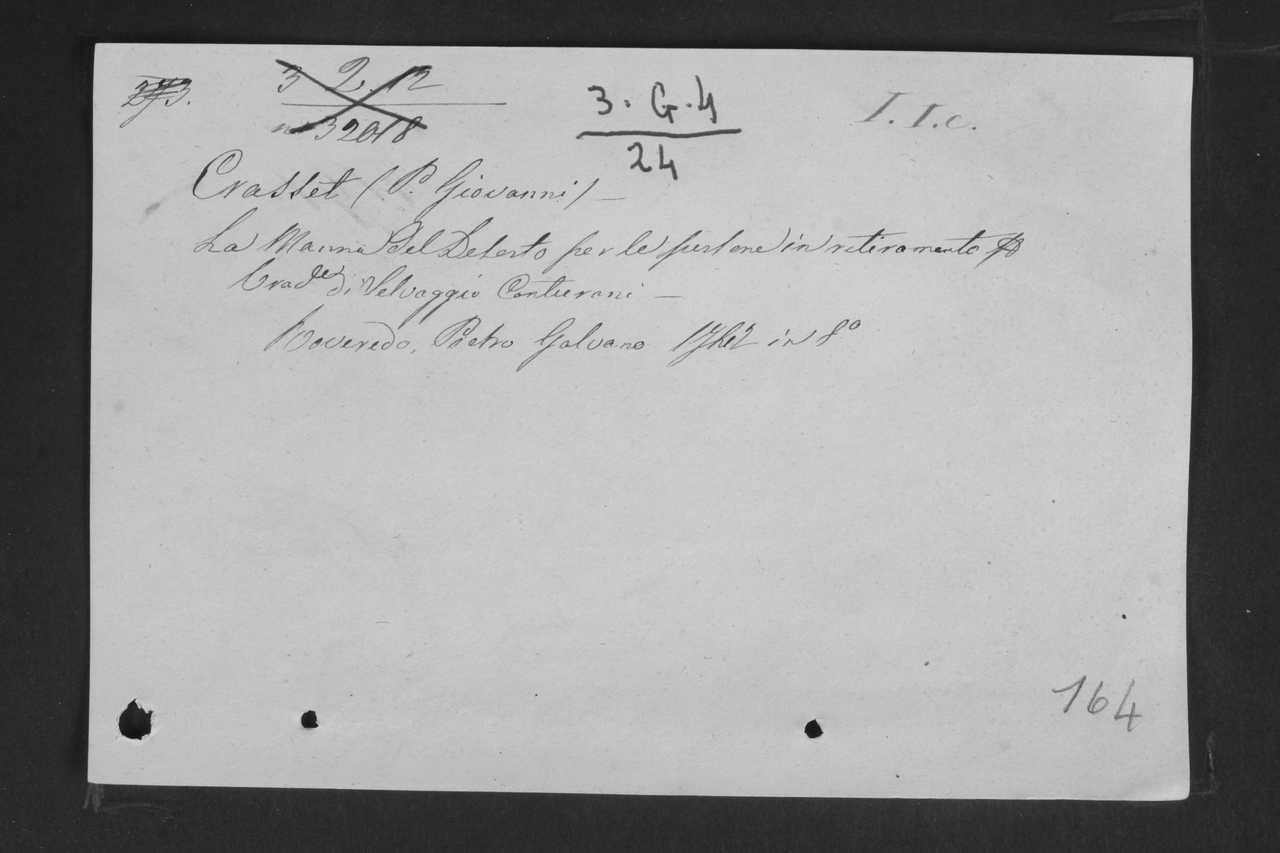 3 2. 12
n° 32018
3. G. 4
24
I. I. c.
Crasset (P. Giovanni) —
La Manna del Deserto per le persone in ritiramento
Trad.e di Selvaggio Canturani —
Roveredo, Pietro Galvano in 8°
164